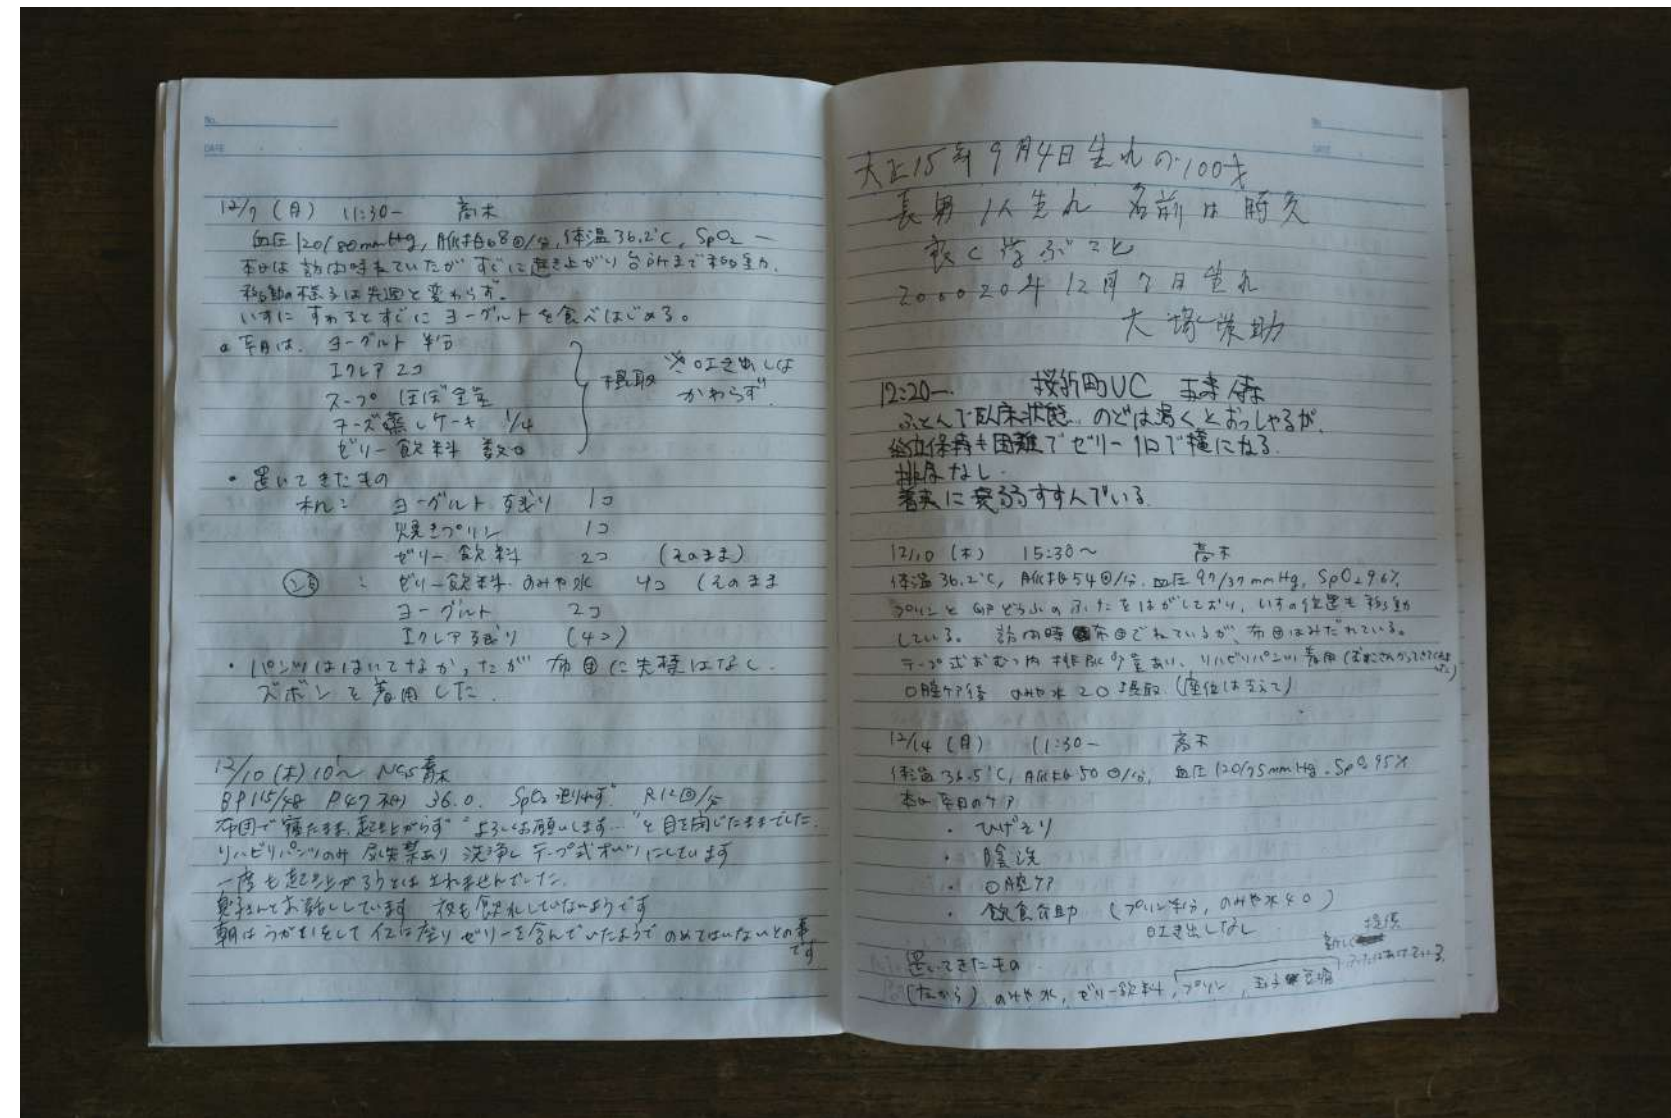 No.
DATE
12/7 (月) 11:30〜 高木
血圧120/80mmHg, 脈拍68回/分, 体温36.2℃, SpO2 ー
本日は訪問時ねていたがすぐに起き上がり台所まで移動。
移動の様子は先週と変わらず。
いすにすわるとすぐにヨーグルトを食べはじめる。
ヨーグルト 半分
エクレア 2コ
スープ ほぼ全量
チーズ蒸しケーキ 1/4
ゼリー飲料 数口
摂取 ※吐き出しは
かわらず
・置いてきたもの
机: ヨーグルト残り 1コ
焼きプリン 1コ
ゼリー飲料 2コ (そのまま)
: ゼリー飲料・のみや水 4コ (そのまま
ヨーグルト 2コ
エクレア残り (4コ)
・パンツははいてなかったが布団に失禁はなし.
ズボンを着用した.
12/10 (木) 10〜 NS青木
BP115/48 P47 36.0. SpO2 測れず R12回/分
布団で寝たまま、起き上がらず "よろしくお願いします…" と目を閉じたままでした.
リハビリパンツのみ 尿失禁あり 洗浄し テープ式オムツにしています
一度も起き上がろうとはされませんでした.
とお話ししています 夜も飲水していないようです
朝はうがいをして イスに座り ゼリーを含んでいたようで のめてはいないとの事
です
No.
DATE
大正15年9月4日生れの100才
長男1人生れ 名前は 時久
良く学ぶこと
200020年12月7日生れ
大塚栄助
12:20〜. 桜新町UC 森
ふとんで臥床状態. のどは渇くとおっしゃるが.
座位保持も困難でゼリー1口で横になる.
排尿なし.
着実に衰弱すすんでいる.
12/10 (木) 15:30〜 高木
体温36.2℃, 脈拍54回/分, 血圧97/37mmHg, SpO2 96%
プリンと 豆どうふのふたをはがしており, いすの位置も移動
している。 訪問時 布団でねているが、布団はみだれている。
テープ式おむつ内 排尿少量あり, リハビリパンツ着用
口腔ケア後 のみや水20摂取. (座位は支えて)
12/14 (月) 11:30〜 高木
体温36.5℃, 脈拍50回/分, 血圧120/75mmHg. SpO2 95%
本日のケア
・ひげそり
・陰洗
・口腔ケア
・飲食介助 (プリン半分, のみや水40)
吐き出しなし
置いてきたもの
のみや水, ゼリー飲料, プリン, 玉子豆腐
ふたはあけている